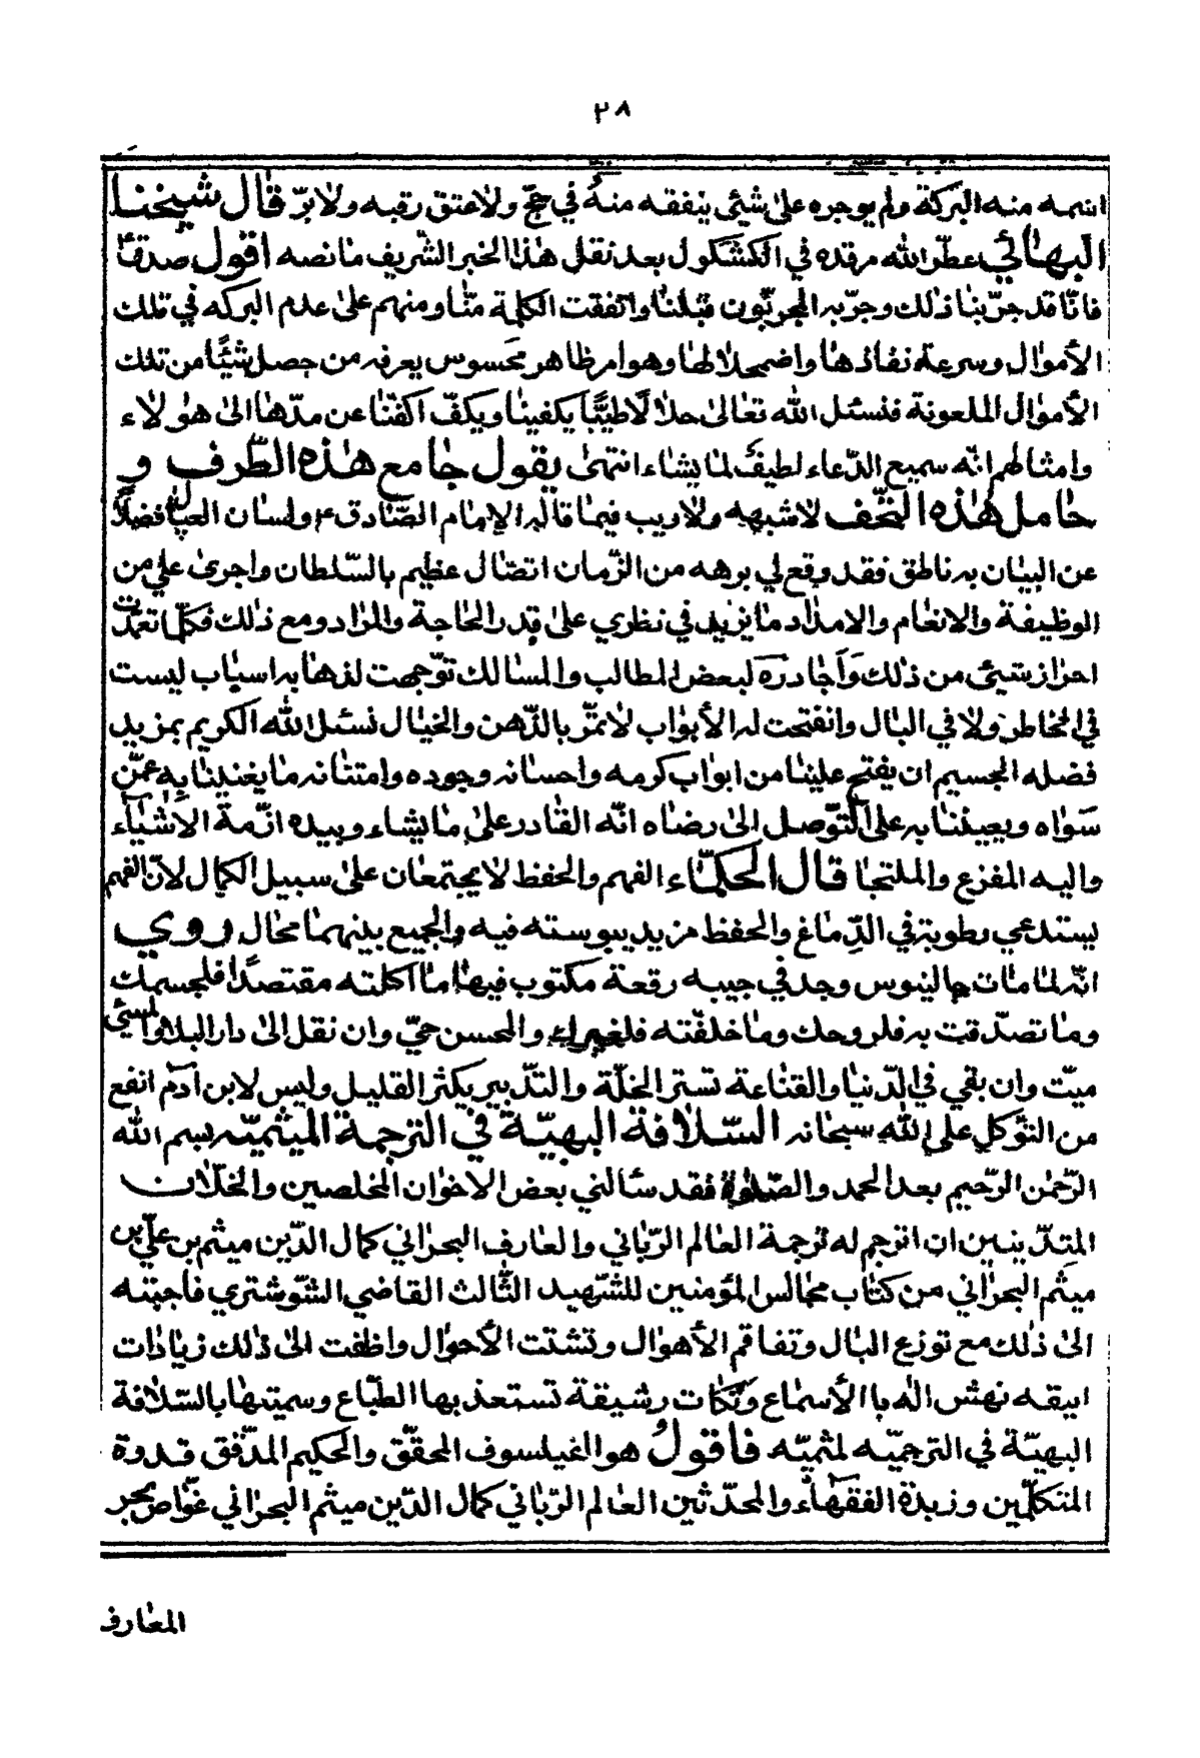 ٢٨
اسمه منه البركة ولم يوجره على شئي ينفقه منهُ في حجّ ولاعتق رقبه ولابرّ قال شيخنا
البهائي عطّر الله مرقده في الكشكول بعد نقل هذا الخبر الشريف ما نصه اقول صدقؑ
فانّا قد جرّبنا ذلك وجرّبه المجربّون قبلنا واتفقت الكلمة منّا ومنهم على عدم البركه في تلك
الأموال وسرعة نفاذها واضمحلالها وهو امر ظاهر محَسوس يعرفه من حصل شيًئا من تلك
الأموال الملعونة فنسئل الله تعالى حلالًا طيّبًا يكفينا ويكفّ اكفّنا عن مدّها الى هؤلاء
وامثالهم انّه سميع الدّعاء لطيفٌ لما يشاء انتهى يقول جامع هذه الطّرف و
حامل هذه التّحف لاشبهه ولاريب فيما قاله الإمام الصّادقؑ ولسان العيان فضلًا
عن البيان به ناطق فقد وقع لي برهه من الزّمان اتصال عظيم بالسّلطان واجرى علي من
الوظيفة والانعام والامداد ما يزيد في نظري على قدر الحاجة والمراد ومع ذلك فكلّما تعمّدت
احراز شيئ من ذلك وَآجادره لبعض المطالب والمسالك توّجهت لذهابه اسباب ليست
في الخاطر ولا في البال وانفتحت له الأبواب لاتمرّ بالذّهن والخيال نسئل الله الكريم بمزيد
فضله الجسيم ان يفتح علينا من ابواب كرمه واحسانه وجوده وامتنانه ما يغنينا به عمّن
سَواه ويعيننا به على التّوصل الى رضاه انّه القادر على ما يشاء وبيده ازّمة الاشياء
واليه المفزع والملتجا قال الحكمّاء الفهم والحفظ لايجتمعان على سبيل الكمال لانّ الفهم
يستدعي رطوبة في الدّماغ والحفظ مزيد يبوسته فيه والجميع بينهما محال روي
انّه لما مات جالينوس وجد في جيبه رقعة مكتوب فيها ما اكلته مقتصدًا فلجسمك
وما تصدّقت به فلروحك وما خلفّته فلغيرك والمحسن حيّ وان نقل الى دار البلا والمسئي
ميّت وان بقي في الدّنيا والقناعة تستر الخلّة والتدّبير يكثر القليل وليس لابن آدم انفع
من التوّكل على الله سبحانه السّلافة البهيّة في الترجمة الميثميّه بسم الله
الرّحمن الرّحيم بعد الحمد والصّلوة فقد سئالني بعض الاخوان المخلصين والخلّان
المتِدّينين ان اترجم له ترجمة العالم الرّباني والعارف البحراني كمال الدّين ميثم بن عليّ بن
ميثم البحراني من كتاب مجالس المؤمنين للشّهيد الثّالث القاضي الشّوشتري فاجبته
الى ذلك مع توزع البال وتفاقم الأهوال وتشتت الأحوال واظفت الى ذلك زيادات
انيقه تهشّ اله باالأسماع ونكات رشيقة تستعذ بها الطّباع وسميتها بالسّلافة
البهيّة في الترجميّه لمثميّه فاقولُ هو الفيلسوف المحقّق والحكيم المدّقق قدوة
المتكلّمين وزبدة الفقهاء والمحدّثين العالم الرّباني كمال الدّين ميثم البحراني غوّاص بحر
المعارف